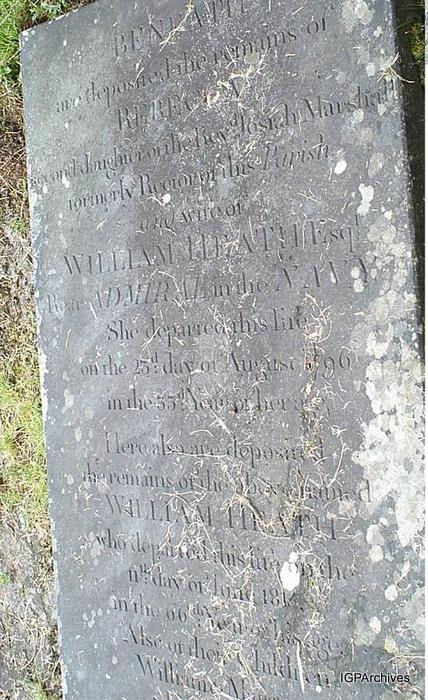 BENEATH
are deposited the remains of
REBECCA
second daughter of the Revd. Josiah Marshall
formerly Rector of this Parish
and wife of
WILLIAM HEATH Esqr.
Rear ADMIRAL in the NAVY
She departed this life
on the 25d. day of August 1796
in the 55d. Year of her age
Here also are deposited
the remains of the above named
WILLIAM HEATH
who departed this life on the
11th. day of June
in the 66th. Year of his age
Also of their Children
William
IGPArchives